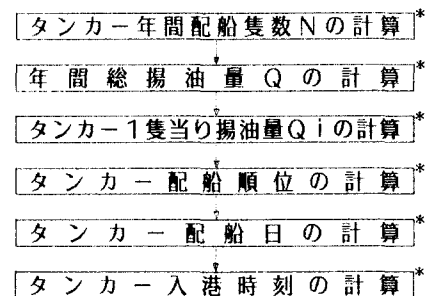 タンカー年間配船隻数Nの計算*
年間総揚油量Qの計算*
タンカー1隻当り揚油量Qiの計算*
タンカー配船順位の計算*
タンカー配船日の計算*
タンカー入港時刻の計算*